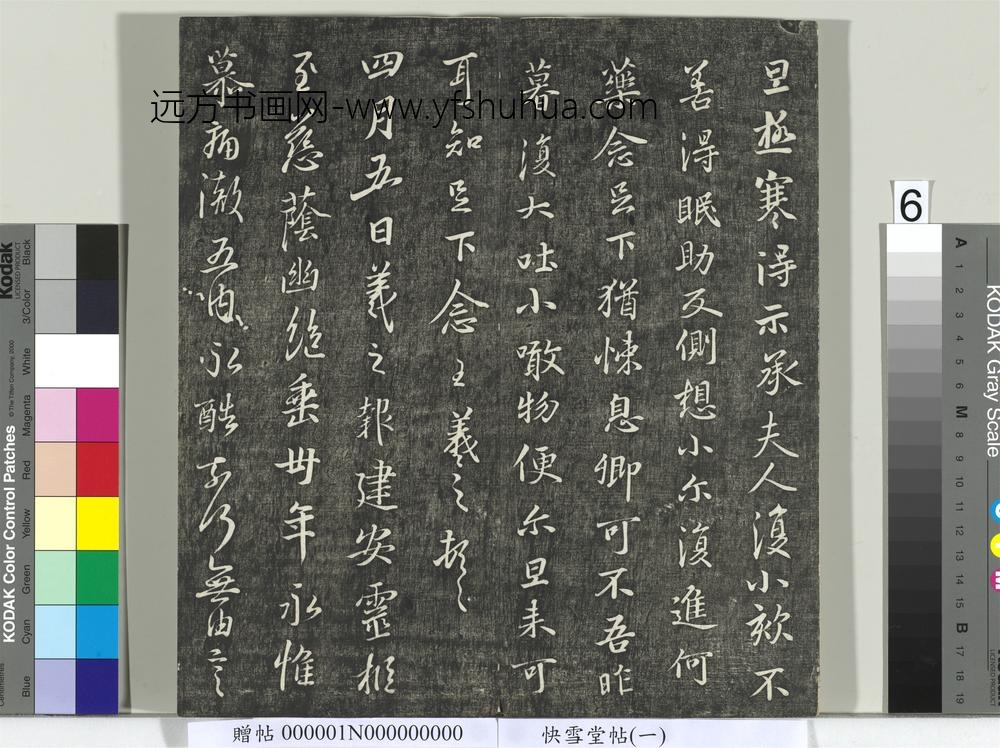 旦極寒得示承夫人復小欬不
善得眠助反側想小尓復進何
藥念足下猶悚息卿可不吾昨
暮復大吐小噉物便尓旦来可
耳知足下念王羲之頓首
四月五日羲之報建安靈柩
至慈蔭幽絕垂卅年永惟
慕痛徹五內永酷奈何無由言
远方书画网-www.yfshuhua.com
6
Kodak
LICENSED PRODUCT
KODAK Color Control Patches
© The Tiffen Company, 2000
Black
3/Color
White
Magenta
Red
Yellow
Green
Cyan
Blue
Centimetres
KODAK Gray Scale
A 1 2 3 4 5 6 M 8 9 10 11 12 13 14 15 B 17 18 19
贈帖 000001N000000000
快雪堂帖(一)